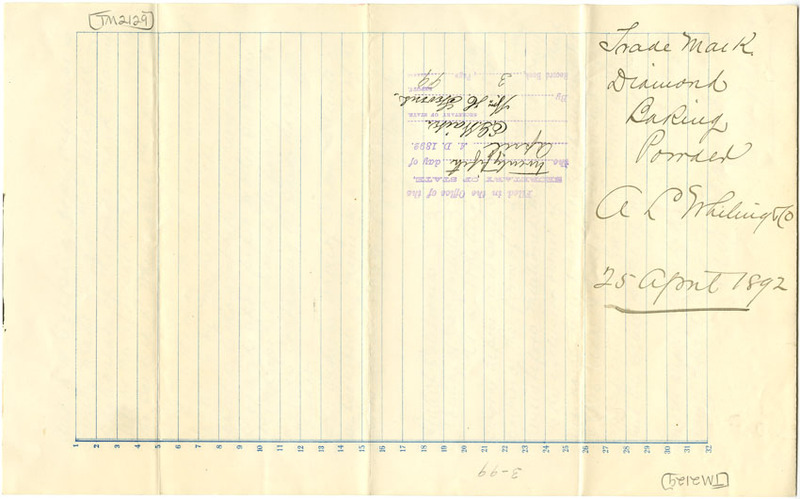 TM2129
Trade Mark.
Diamond
Baking
Powder
A L Whiting & Co
25 April 1892
Filed in the Office of the
SECRETARY OF STATE,
the twenty fifth day of
April A. D. 1892.
SECRETARY OF STATE
By Wm H.
DEPUTY
Record Book 3, Page 99
1 2 3 4 5 6 7 8 9 10 11 12 13 14 15 16 17 18 19 20 21 22 23 24 25 26 27 28 29 30 31 32
3-99
TM2129